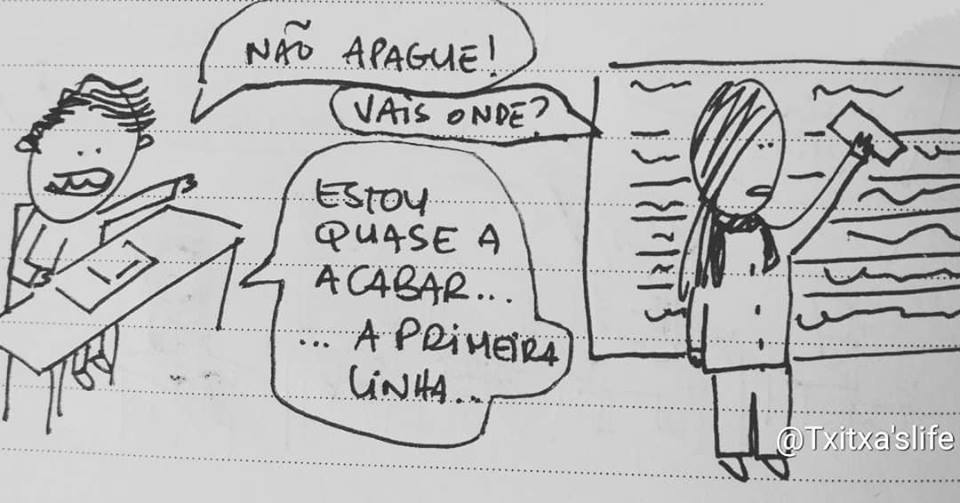 NÃO APAGUE!
VAIS ONDE?
ESTOU
QUASE A
ACABAR...
... A PRIMEIRA
LINHA...
@Txitxa'slife